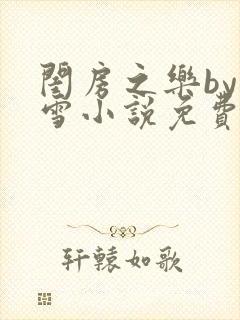 閨房之樂by
雪小說免費
轩辕如歌